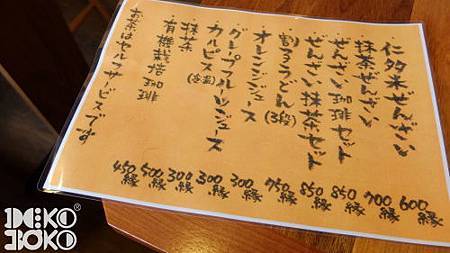 仁多米ぜんざい 600縁
抹茶ぜんざい 700縁
ぜんざい珈琲セット 850縁
ぜんざい抹茶セット 850縁
割子うどん(3段) 750縁
オレンジジュース 300縁
グレープフルーツジュース 300縁
カルピス 300縁
抹茶 500縁
有機栽培珈琲 450縁
お茶はセルフサービスです
DEKO
BOKO
®